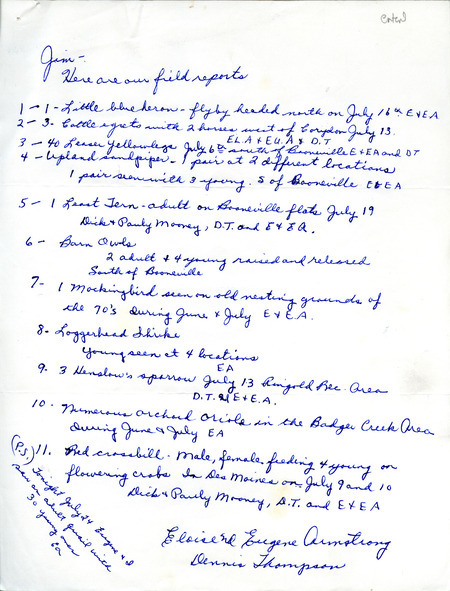 Enterd
Jim-
Here are our field reports
1 - 1 - Little blue heron - flyby headed north on July 16th E & EA
2 - 3 - Cattle egrets with 2 horses west of Corydon July 13.
EL A + EU. A & D.T
3 - 40 Lesser Yellowlegs July 6th south of Booneville E & EA and DT
4 - Upland sandpiper - 1 pair at 2 different locations
1 pair seen with 3 young. S of Booneville E & EA
5 - 1 Least Tern - adult on Booneville flats July 19
Dick & Pauly Mooney, D.T. and E & EA.
6 - Barn Owls
2 adult & 4 young raised and released
South of Booneville
7 - 1 Mockingbird seen on old nesting grounds of
the 70's during June & July E & E.A.
8 - Loggerhead Shrike
Young seen at 4 locations
EA
9. 3 Henslow's sparrow July 13 Ringold Rec. Area
D.T. E & E.A.
10. Numerous orchard oriole in the Badger Creek Area
During June & July EA
11. Red crossbill - Male, female feeding 4 young on
flowering crabs In Des Moines on July 9 and 10
Dick & Pauly Mooney, D.T. and E & EA
(P.S.) Tonight July 24 Eugene & I
saw an adult quail with
30 young near
Eloise and Eugene Armstrong
Dennis Thompson